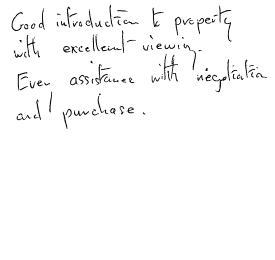 Good introduction to property
with excellent viewing.
Even assistance with negotiation
and purchase.